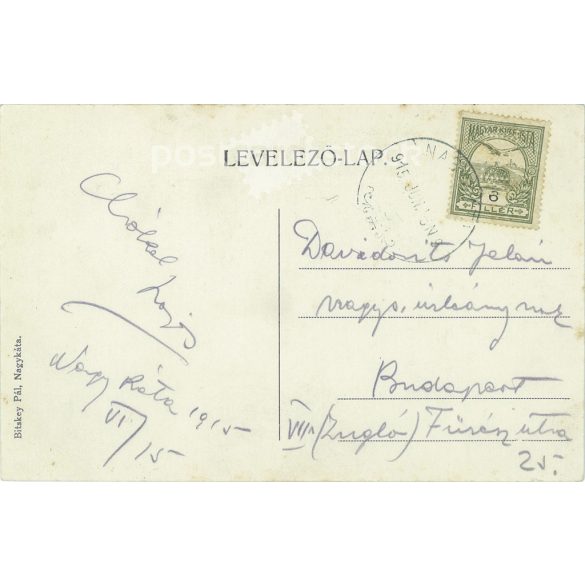 LEVELEZŐ-LAP.
MAGYAR KIR. POSTA
6
FILLÉR
915 JUN.
Csókol
Lajos
Nagy Káta 1915
VI/15
Bitskey Pál, Nagykáta.
Davidovits Jolán
nagys. úrleánynak
Budapest
VII/1 (Zugló) Fürész utca
25.